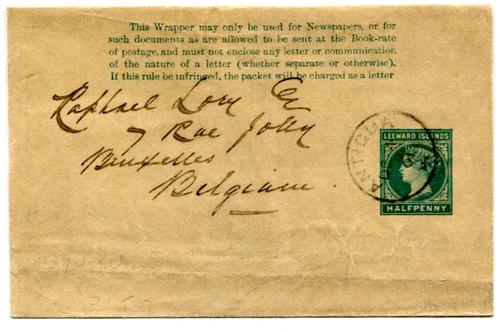 This Wrapper may only be used for Newspapers, or for
such documents as are allowed to be sent at the Book-rate
of postage, and must not enclose any letter or communication
of the nature of a letter (whether separate or otherwise).
If this rule be infringed, the packet will be charged as a letter
Raphael Lory
7 Rue Jolly
Bruxelles
Belgium
ANTIGUA
LEEWARD ISLANDS
HALFPENNY